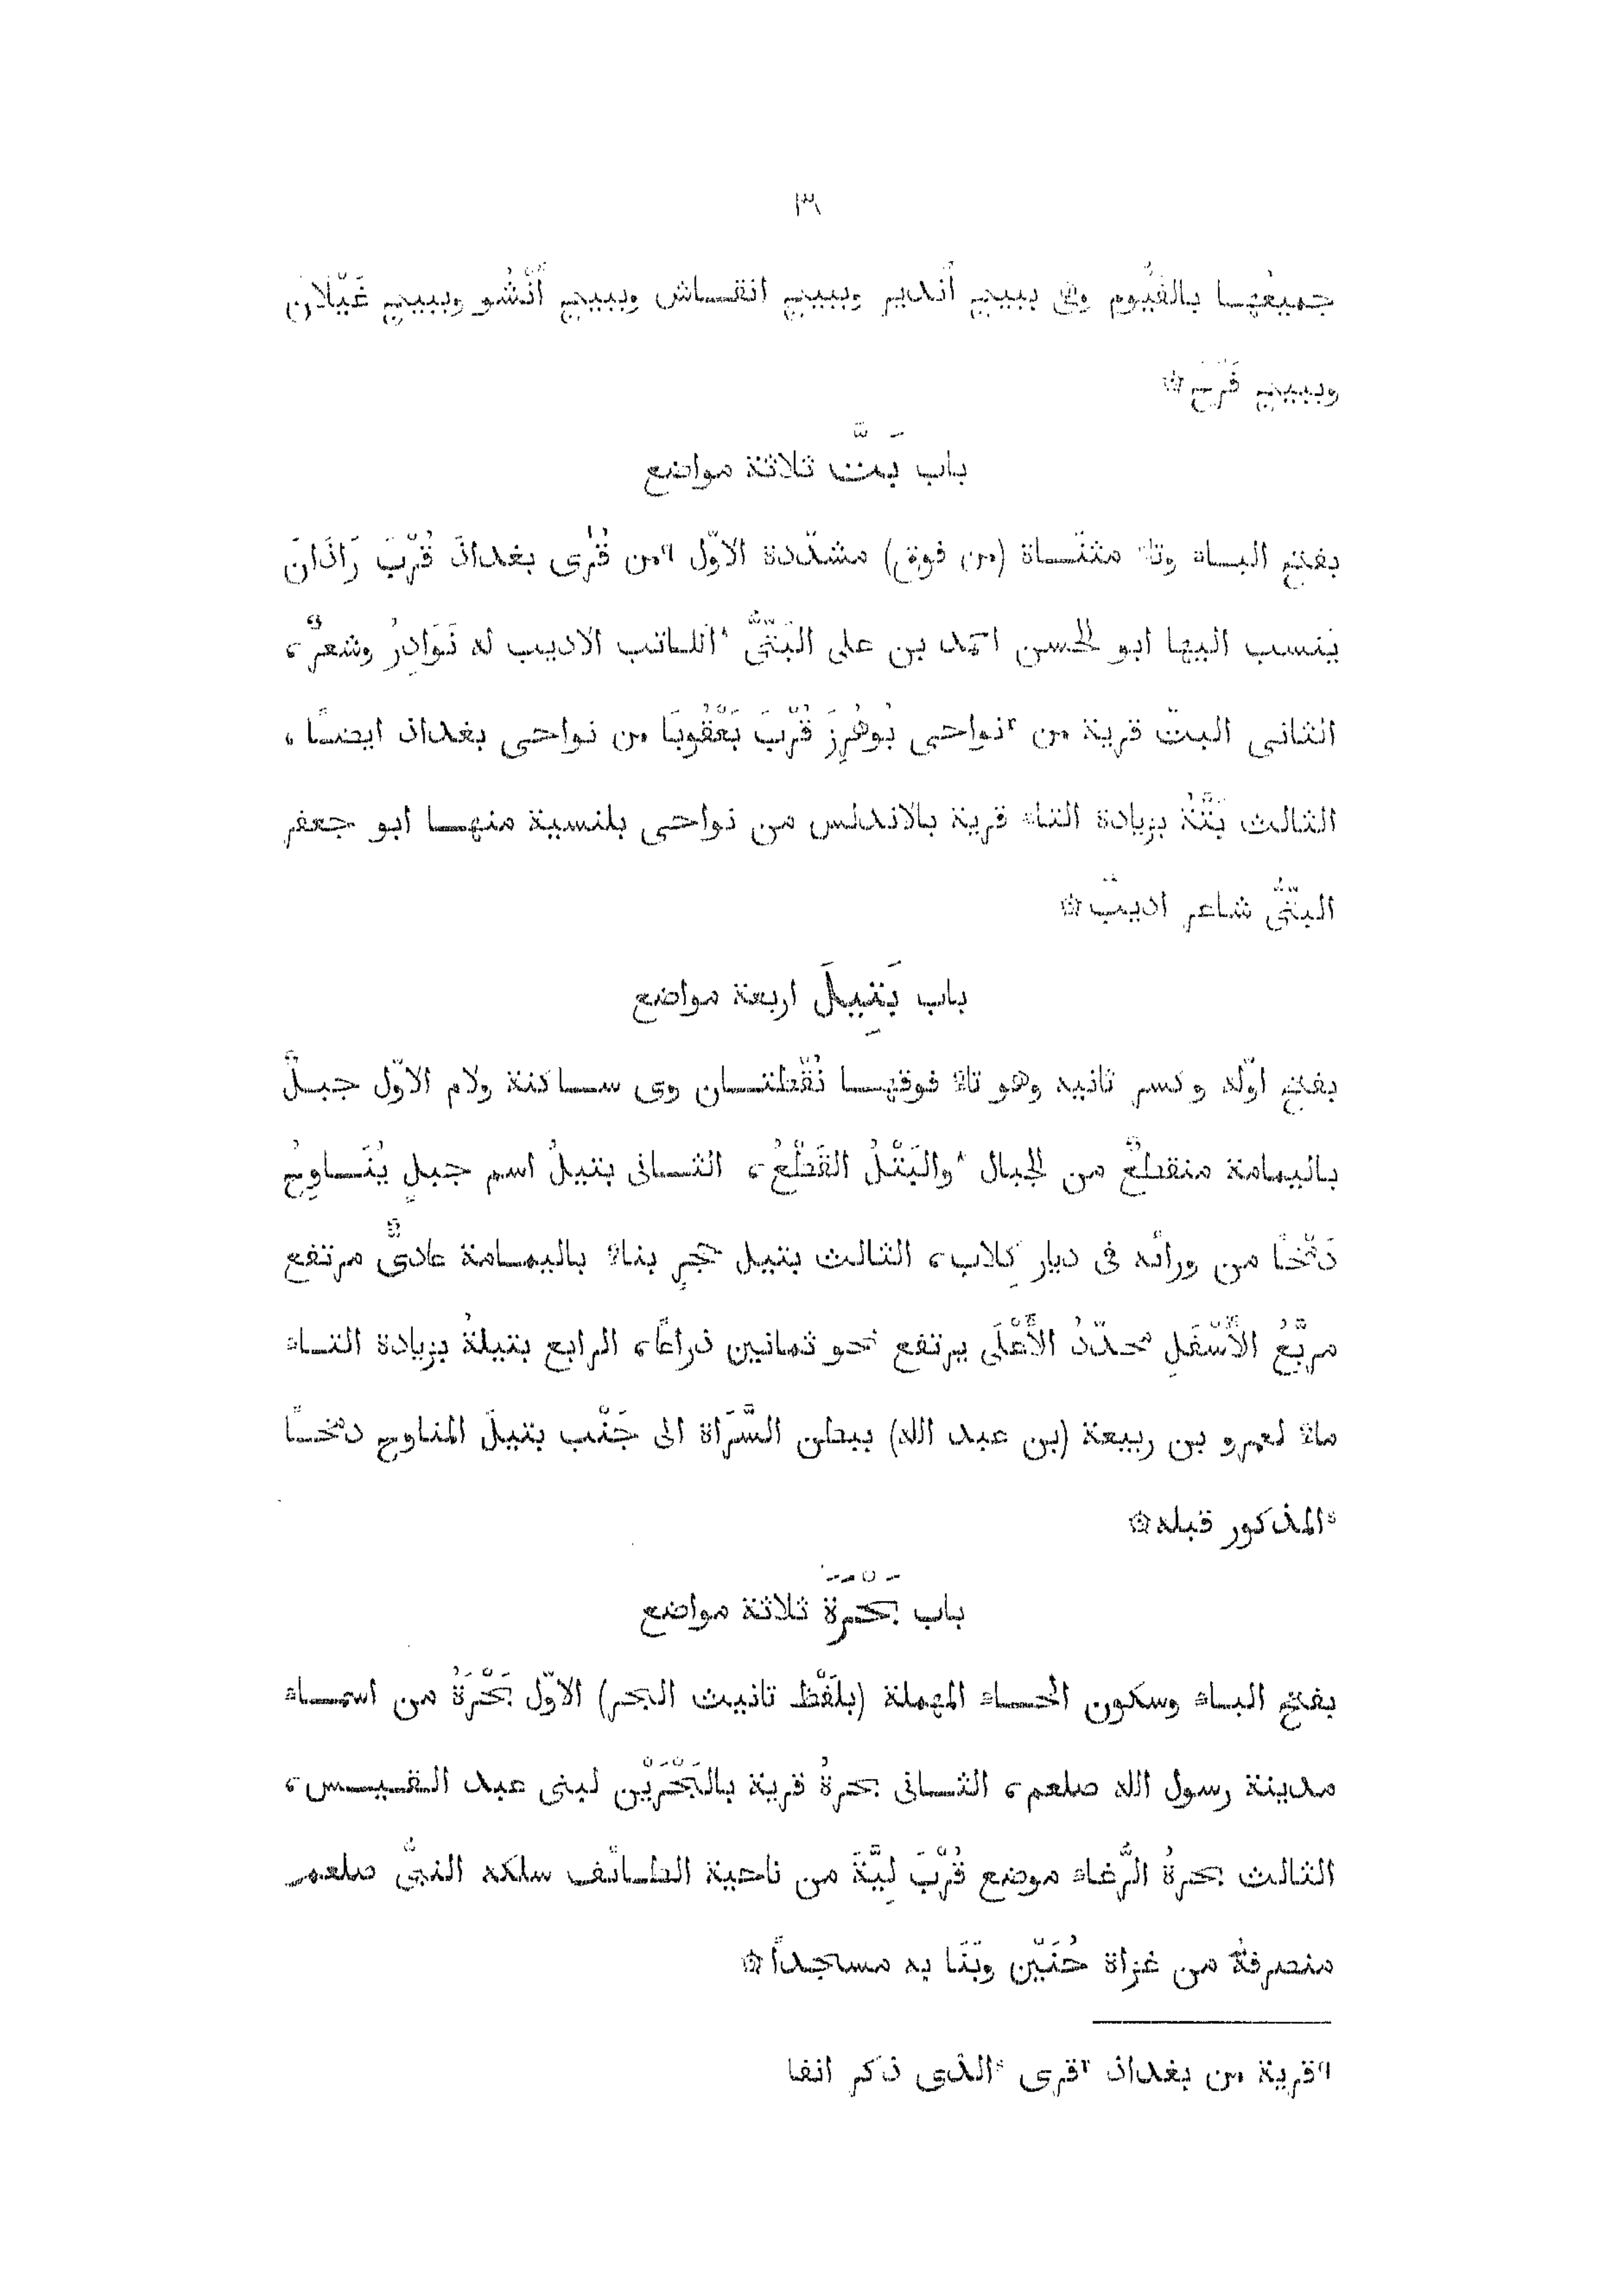 ٣١
جميعُها بالفَيُّوم وهى ببيج أَندير وببيج انقـاش وببيج أَنْشُو وببيج غَيْلَان
وببيج فَرَح ۞
باب بَتّ ثلاثة مواضع
بفتح البـاء وتاء مثنّـاة (من فوق) مشدّدة الاوّل ٩من قُرَى بغداذ قُرْبَ رَاذَانَ
يَنسب اليها ابو الحسن احمد بن على البَتّىُّ ٨الكاتب الاديب له نَوَادِرُ وشعرٌ،
الثانى البتّ قرية من ٢نواحى بُوهُرِزَ قُرْبَ بَعْقُوبَا من نواحى بغداذ ايضًـا،
الثالث بَتَّةُ بزيادة التاء قرية بالاندلس من نواحى بلنسية منهـا ابو جعفر
البتّىُّ شاعر اديبٌ ۞
باب بَتِيلَ اربعة مواضع
بفتح اوّله وكسر ثانيه وهو تاء فوقهـا نُقْطتـان وى سـاكنة ولام الاوّل جبـلٌ
باليمامة منقطعٌ من الجبال ٨والبَتْلُ القَطْعُ، الثـانى بتيلُ اسم جبلٍ يُنَـاوِحُ
دَمْخًا من ورائه فى ديار كِلاب، الثالث بتيل حجرٍ بناءٌ باليمـامة عادىٌّ مرتفع
مربَّعُ الأَسْفَلِ محدَّدُ الأَعْلَى يرتفع نحو ثمانين ذراعًا، الرابع بتيلةُ بزيادة التـاء
ماءٌ لعمرو بن ربيعة (بن عبد الله) ببطن السَّرَاة الى جَنْب بتيلَ المناوح دمخـًا
٤المذكور قبله ۞
باب بَحْرَة ثلاثة مواضع
بفتح البـاء وسكون الحـاء المهملة (بلَفْظ تانيث البحر) الاوّل بَحْرَةُ من اسمـاء
مدينة رسول الله صلعم، الثـانى بحرةُ قرية بالبَحْرَيْن لبنى عبد القـيـس،
الثالث بحرةُ الرُّغاء موضع قُرْبَ لِيَّةَ من ناحية الطـائف سلكه النبىُّ صلعم
منصرفهُ من غزاة حُنَيْن وبَنَا به مسجدًا ۞
٩قرية من بغداذ ٢قرى ٤الذى ذكر انفا